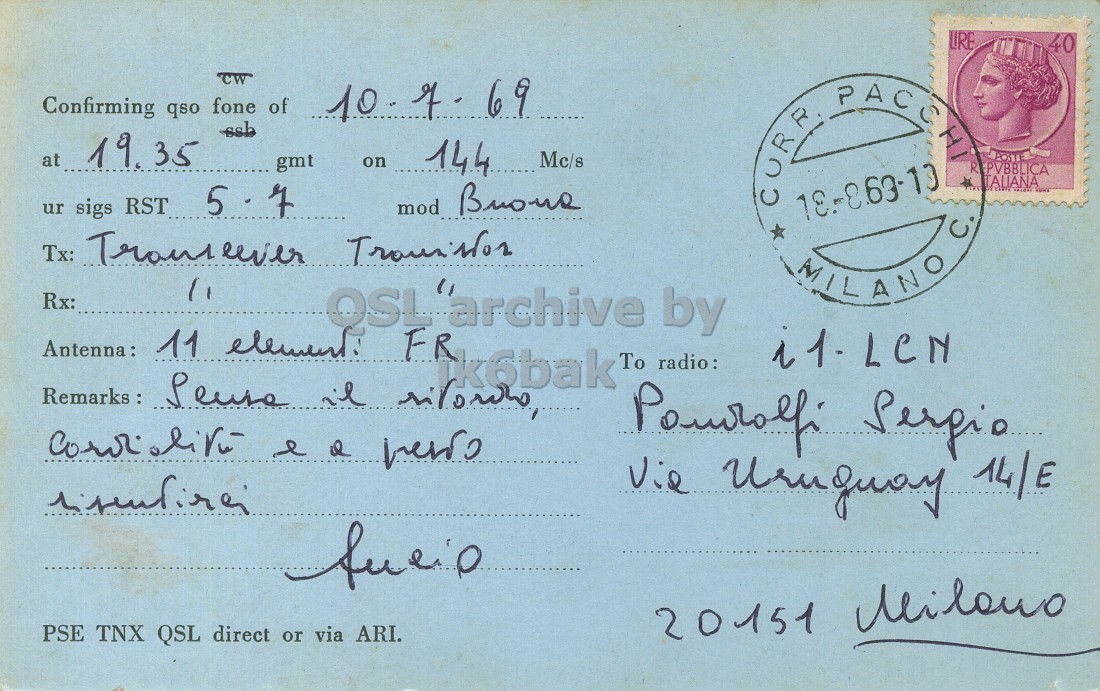 cw
Confirming qso fone of 10-7-69
ssb
at 19.35 gmt on 144 Mc/s
ur sigs RST 5-7 mod Buona
Tx: Tranceever Transistor
Rx: " "
Antenna: 11 elementi FR
Remarks: Scusa il ritardo,
Cordialità e a presto
risentirci
PSE TNX QSL direct or via ARI.
To radio: i1-LCN
Pandolfi Sergio
Via Uruguay 14/E
20151 Milano
LIRE 40
POSTE
REPVBBLICA
ITALIANA
CORR. PACCHI
MILANO
QSL archive by
ik6bak